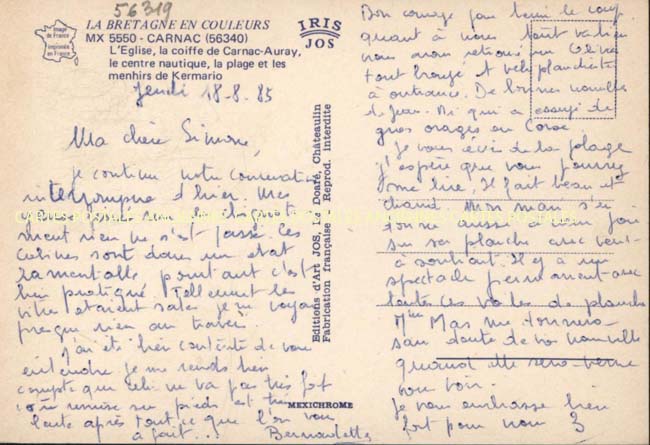 56319
LA BRETAGNE EN COULEURS
MX 5550 - CARNAC (56340)
L'Eglise, la coiffe de Carnac-Auray,
le centre nautique, la plage et les
menhirs de Kermario
Image de France
Imprimée en France
IRIS
JOS
Jeudi 18-8-85
Ma chère Simone,
je continue notre conversation
interrompue d'hier. Mes
ment rien ne s'est passé les
cuisines sont dans un état
lamentable pourtant c'est
bien pratiqué. Tellement les
vitres étaient sales je ne voyais
presque rien au travers.
J'ai été bien contente de vous
entendre je me rends bien
compte que cela ne va pas très fort
remise sur pieds et très
haute après tout ce que l'on vous
a fait...
Bernadette
Editions d'Art JOS, Le Doaré, Châteaulin
Fabrication française - Reprod. Interdite
MEXICHROME
Bon courage pour tenir le coup
quant à nous tout va bien
nous avons retrouvé
tout bronzé et planchiste
à outrance. De bonnes nouvelles
de Jean. Mi qui a essuyé de
gros orages en Corse
Je vous écris de la plage
j'espère que vous pourrez
me lire. Il fait beau et
chaud mon mari s'en
donne aussi à coeur joie
sur sa planche avec vent
à souhait. Il y a un
spectacle permanent avec
toutes ces voiles de planches
Mme Mas me donnera
sans doute de vos nouvelles
quand elle sera venue
vous voir.
Je vous embrasse bien
fort pour nous 3